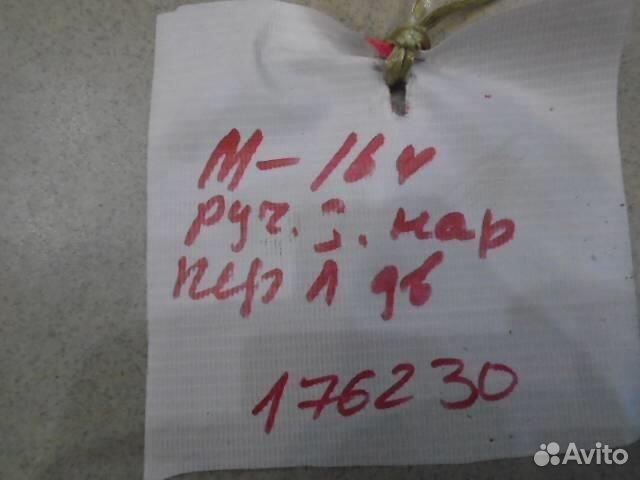 М-16v
руч. З. нар
пер Л дв
176230
Avito